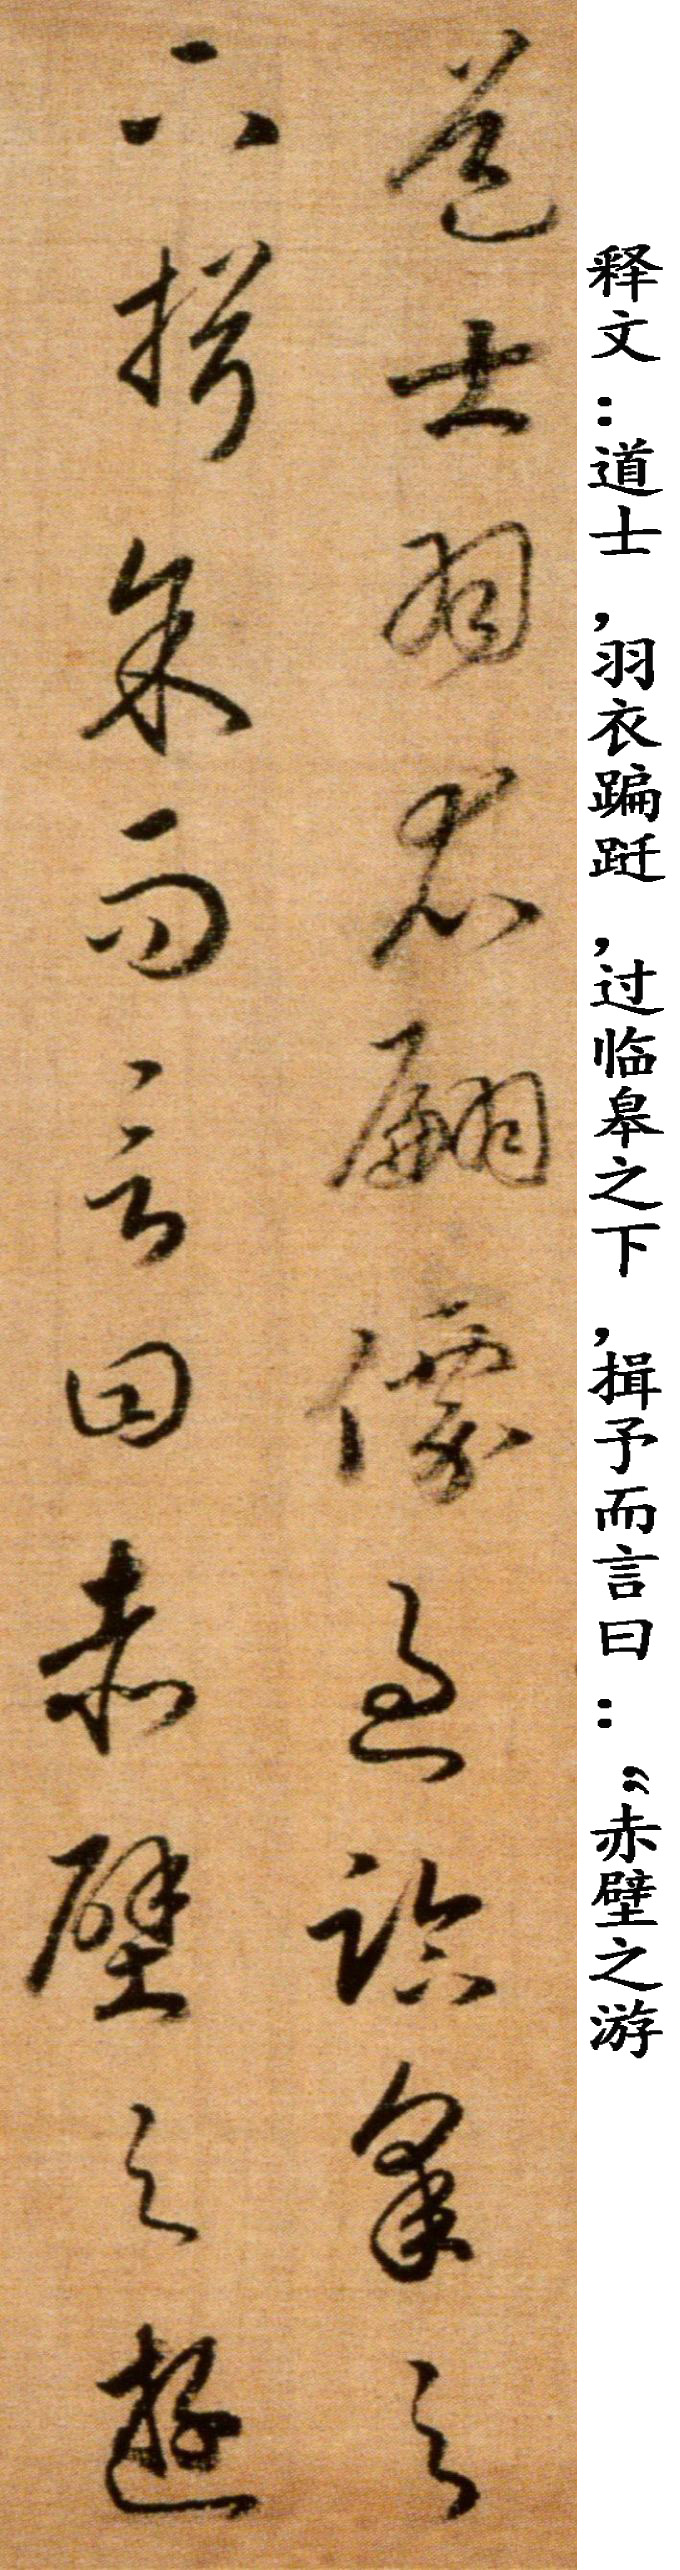 释文:道士,羽衣蹁跹,过临皋之下,揖予而言曰:“赤壁之游
道士羽衣翩僊過臨皋之
下揖余而言曰赤壁之遊